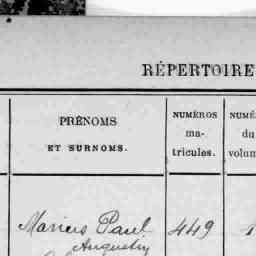 RÉPERTOIRE
PRÉNOMS
ET SURNOMS.
NUMÉROS
ma-
tricules.
NUMÉ
du
volum
Marius Paul 449 1
Augustin